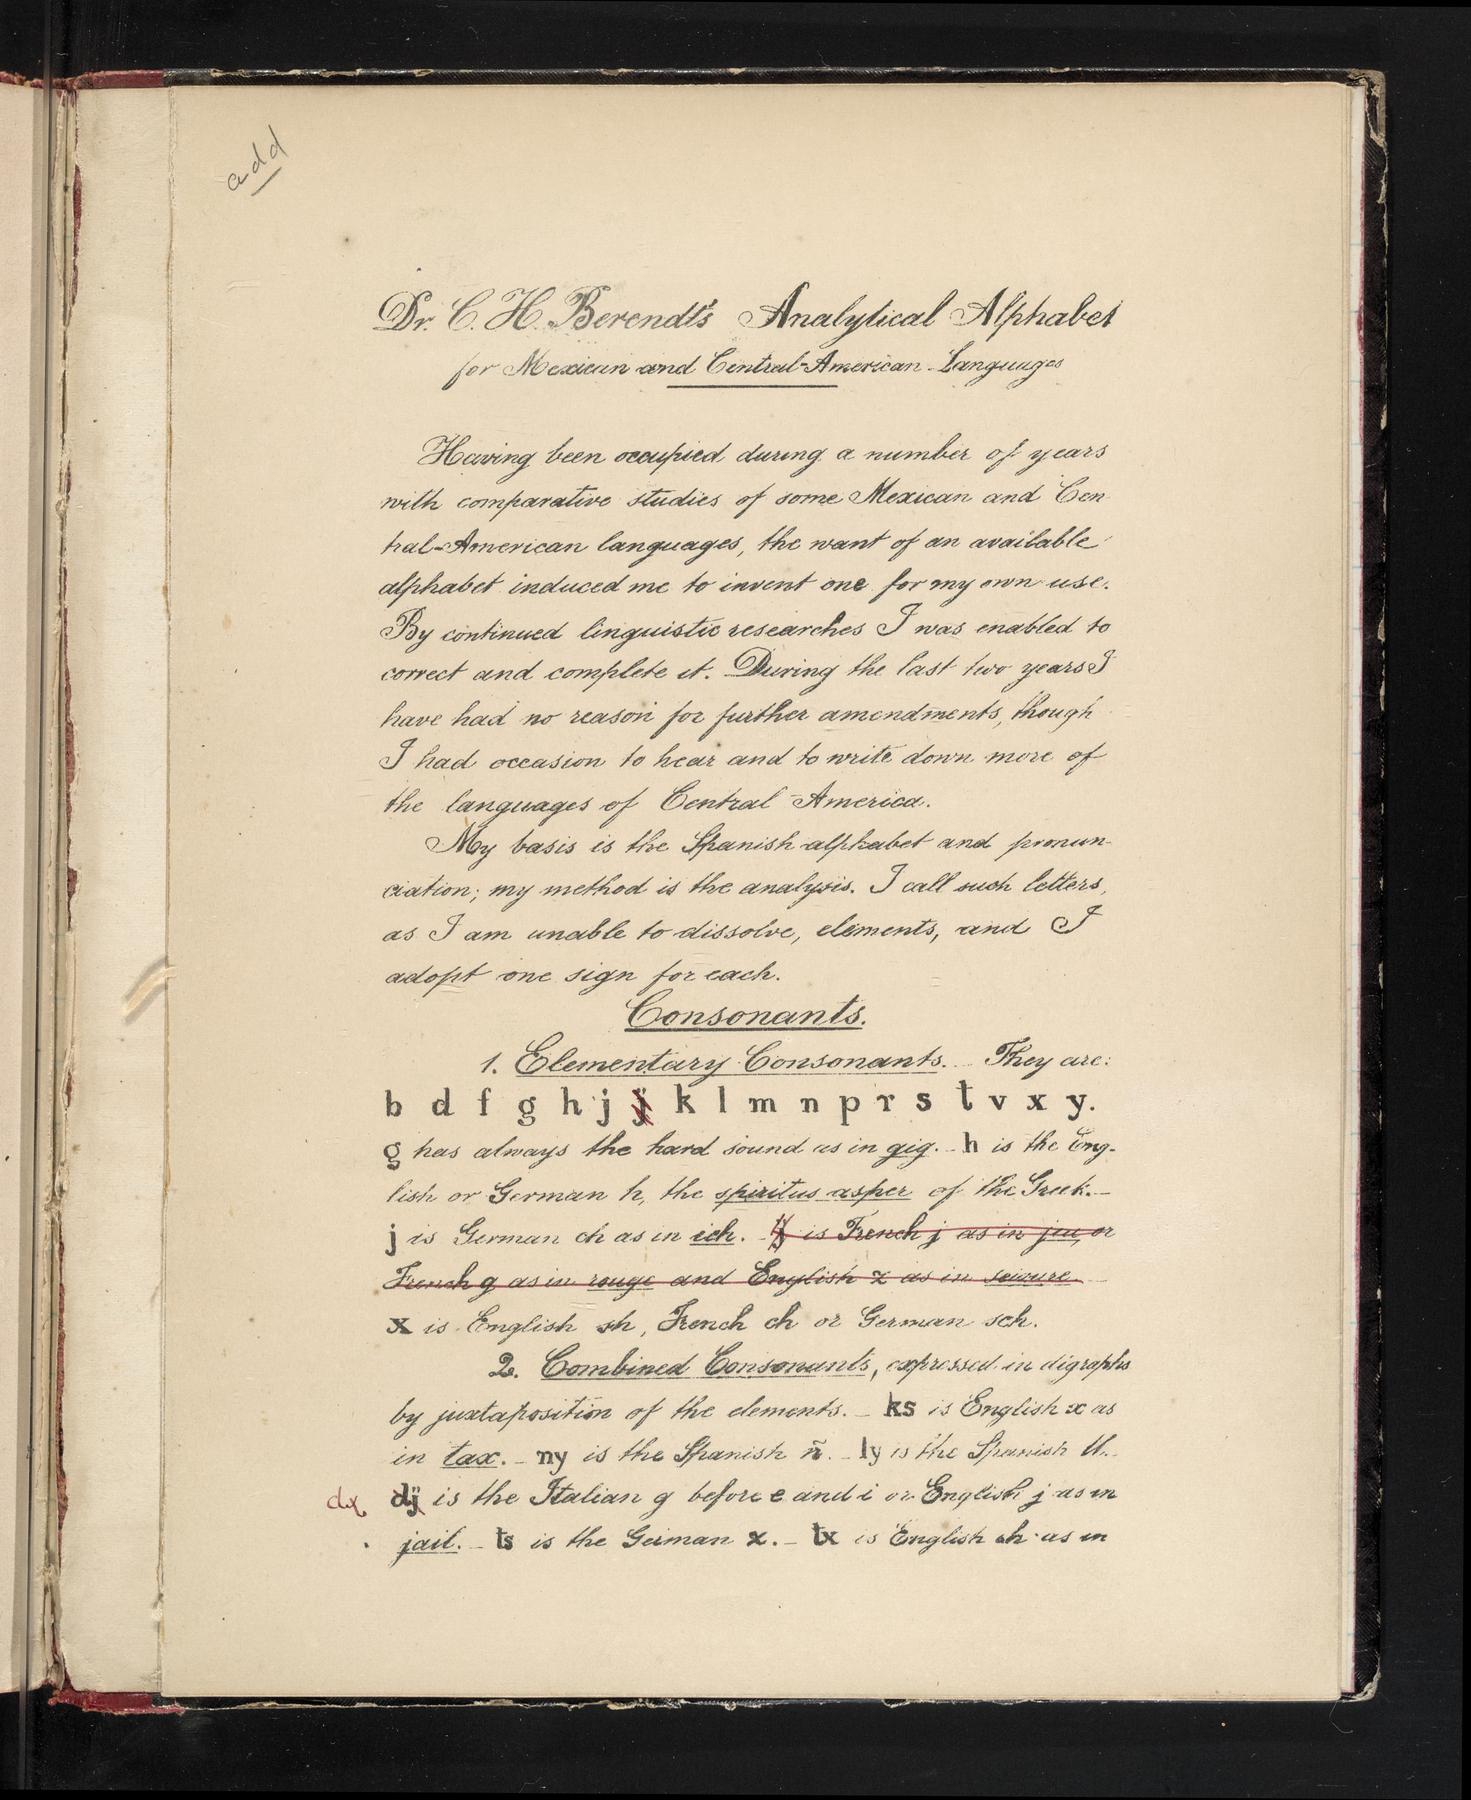 add
Dr. C. H. Berendt's Analytical Alphabet
for Mexican and Central-American Languages
Having been occupied during a number of years
with comparative studies of some Mexican and Cen
tral-American languages, the want of an available
alphabet induced me to invent one for my own use.
By continued linguistic researches I was enabled to
correct and complete it. During the last two years I
have had no reason for further amendments, though
I had occasion to hear and to write down more of
the languages of Central America.
My basis is the Spanish alphabet and pronun-
ciation; my method is the analysis. I call such letters,
as I am unable to dissolve, elements, and I
adopt one sign for each.
Consonants.
1. Elementary Consonants. They are:
b d f g h j j̈ k l m n p r s t v x y.
g has always the hard sound as in gig. - h is the Eng-
lish or German h, the spiritus asper of the Greek. -
j is German ch as in ich. - j̈ is French j as in jeu, or
French g as in rouge and English z as in seizure. -
x is English sh, French ch or German sch.
2. Combined Consonants, expressed in digraphs
by juxtaposition of the elements. - ks is English x as
in tax. - ny is the Spanish ñ. - ly is the Spanish ll. -
dx dj̈ is the Italian g before e and i or English j as in
jail. - ts is the German z. - tx is English ch as in